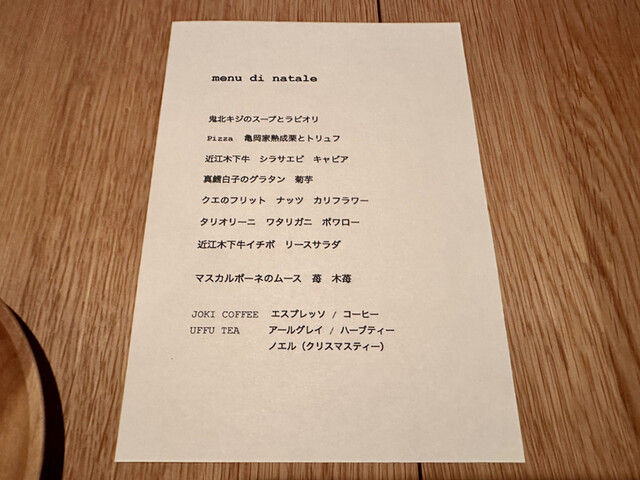 menu di natale
鬼北キジのスープとラビオリ
Pizza 亀岡家熟成栗とトリュフ
近江木下牛 シラサエビ キャビア
真鱈白子のグラタン 菊芋
クエのフリット ナッツ カリフラワー
タリオリーニ ワタリガニ ポワロー
近江木下牛イチボ リースサラダ
マスカルポーネのムース 苺 木苺
JOKI COFFEE エスプレッソ / コーヒー
UFFU TEA アールグレイ / ハーブティー
ノエル（クリスマスティー）